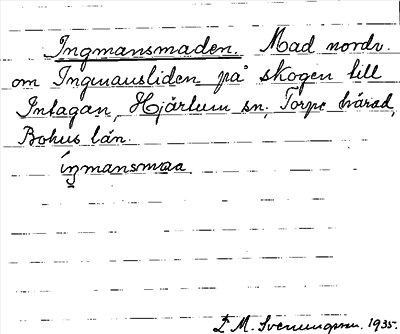 Ingmansmaden. Mad nordv.
om Ingmansliden på skogen till
Intagan, Hjärtum sn; Torpe härad,
Bohus län.
íŋmansmaa
M. Svenungsson. 1935.